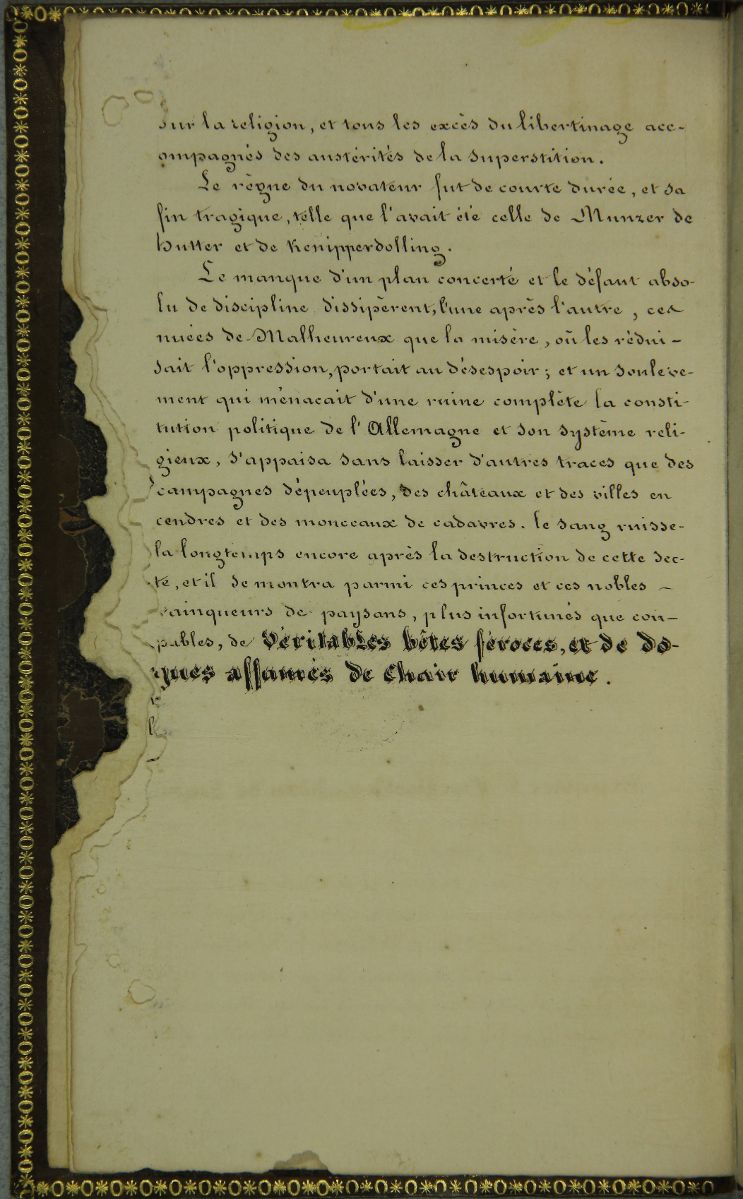 sur la religion, et tous les excès du libertinage acc-
ompagnés des austérités de la superstition.
Le règne du novateur fut de courte durée, et sa
fin tragique, telle que l'avait été celle de Munzer de
Hutter et de Kenipperdolling.
Le manque d'un plan concerté et le défaut abso-
lu de discipline dissipèrent, l'une après l'autre, ces
nuées de Malheureux que la misère, où les rédui-
sait l'oppression, portait au désespoir; et un souleve-
ment qui ménacait d'une ruine complète la consti-
tution politique de l'Allemagne et son système reli-
gieux, s'appaisa sans laisser d'autres traces que des
campagnes dépeuplées, des châteaux et des villes en
cendres et des monceaux de cadavres. le sang ruisse-
la longtemps encore après la destruction de cette sec-
te, et il se montra parmi ces princes et ces nobles -
vainqueurs de paysans, plus infortunés que cou-
pables, de Véritables bêtes féroces, et de do-
gues affamés de Chair humaine.